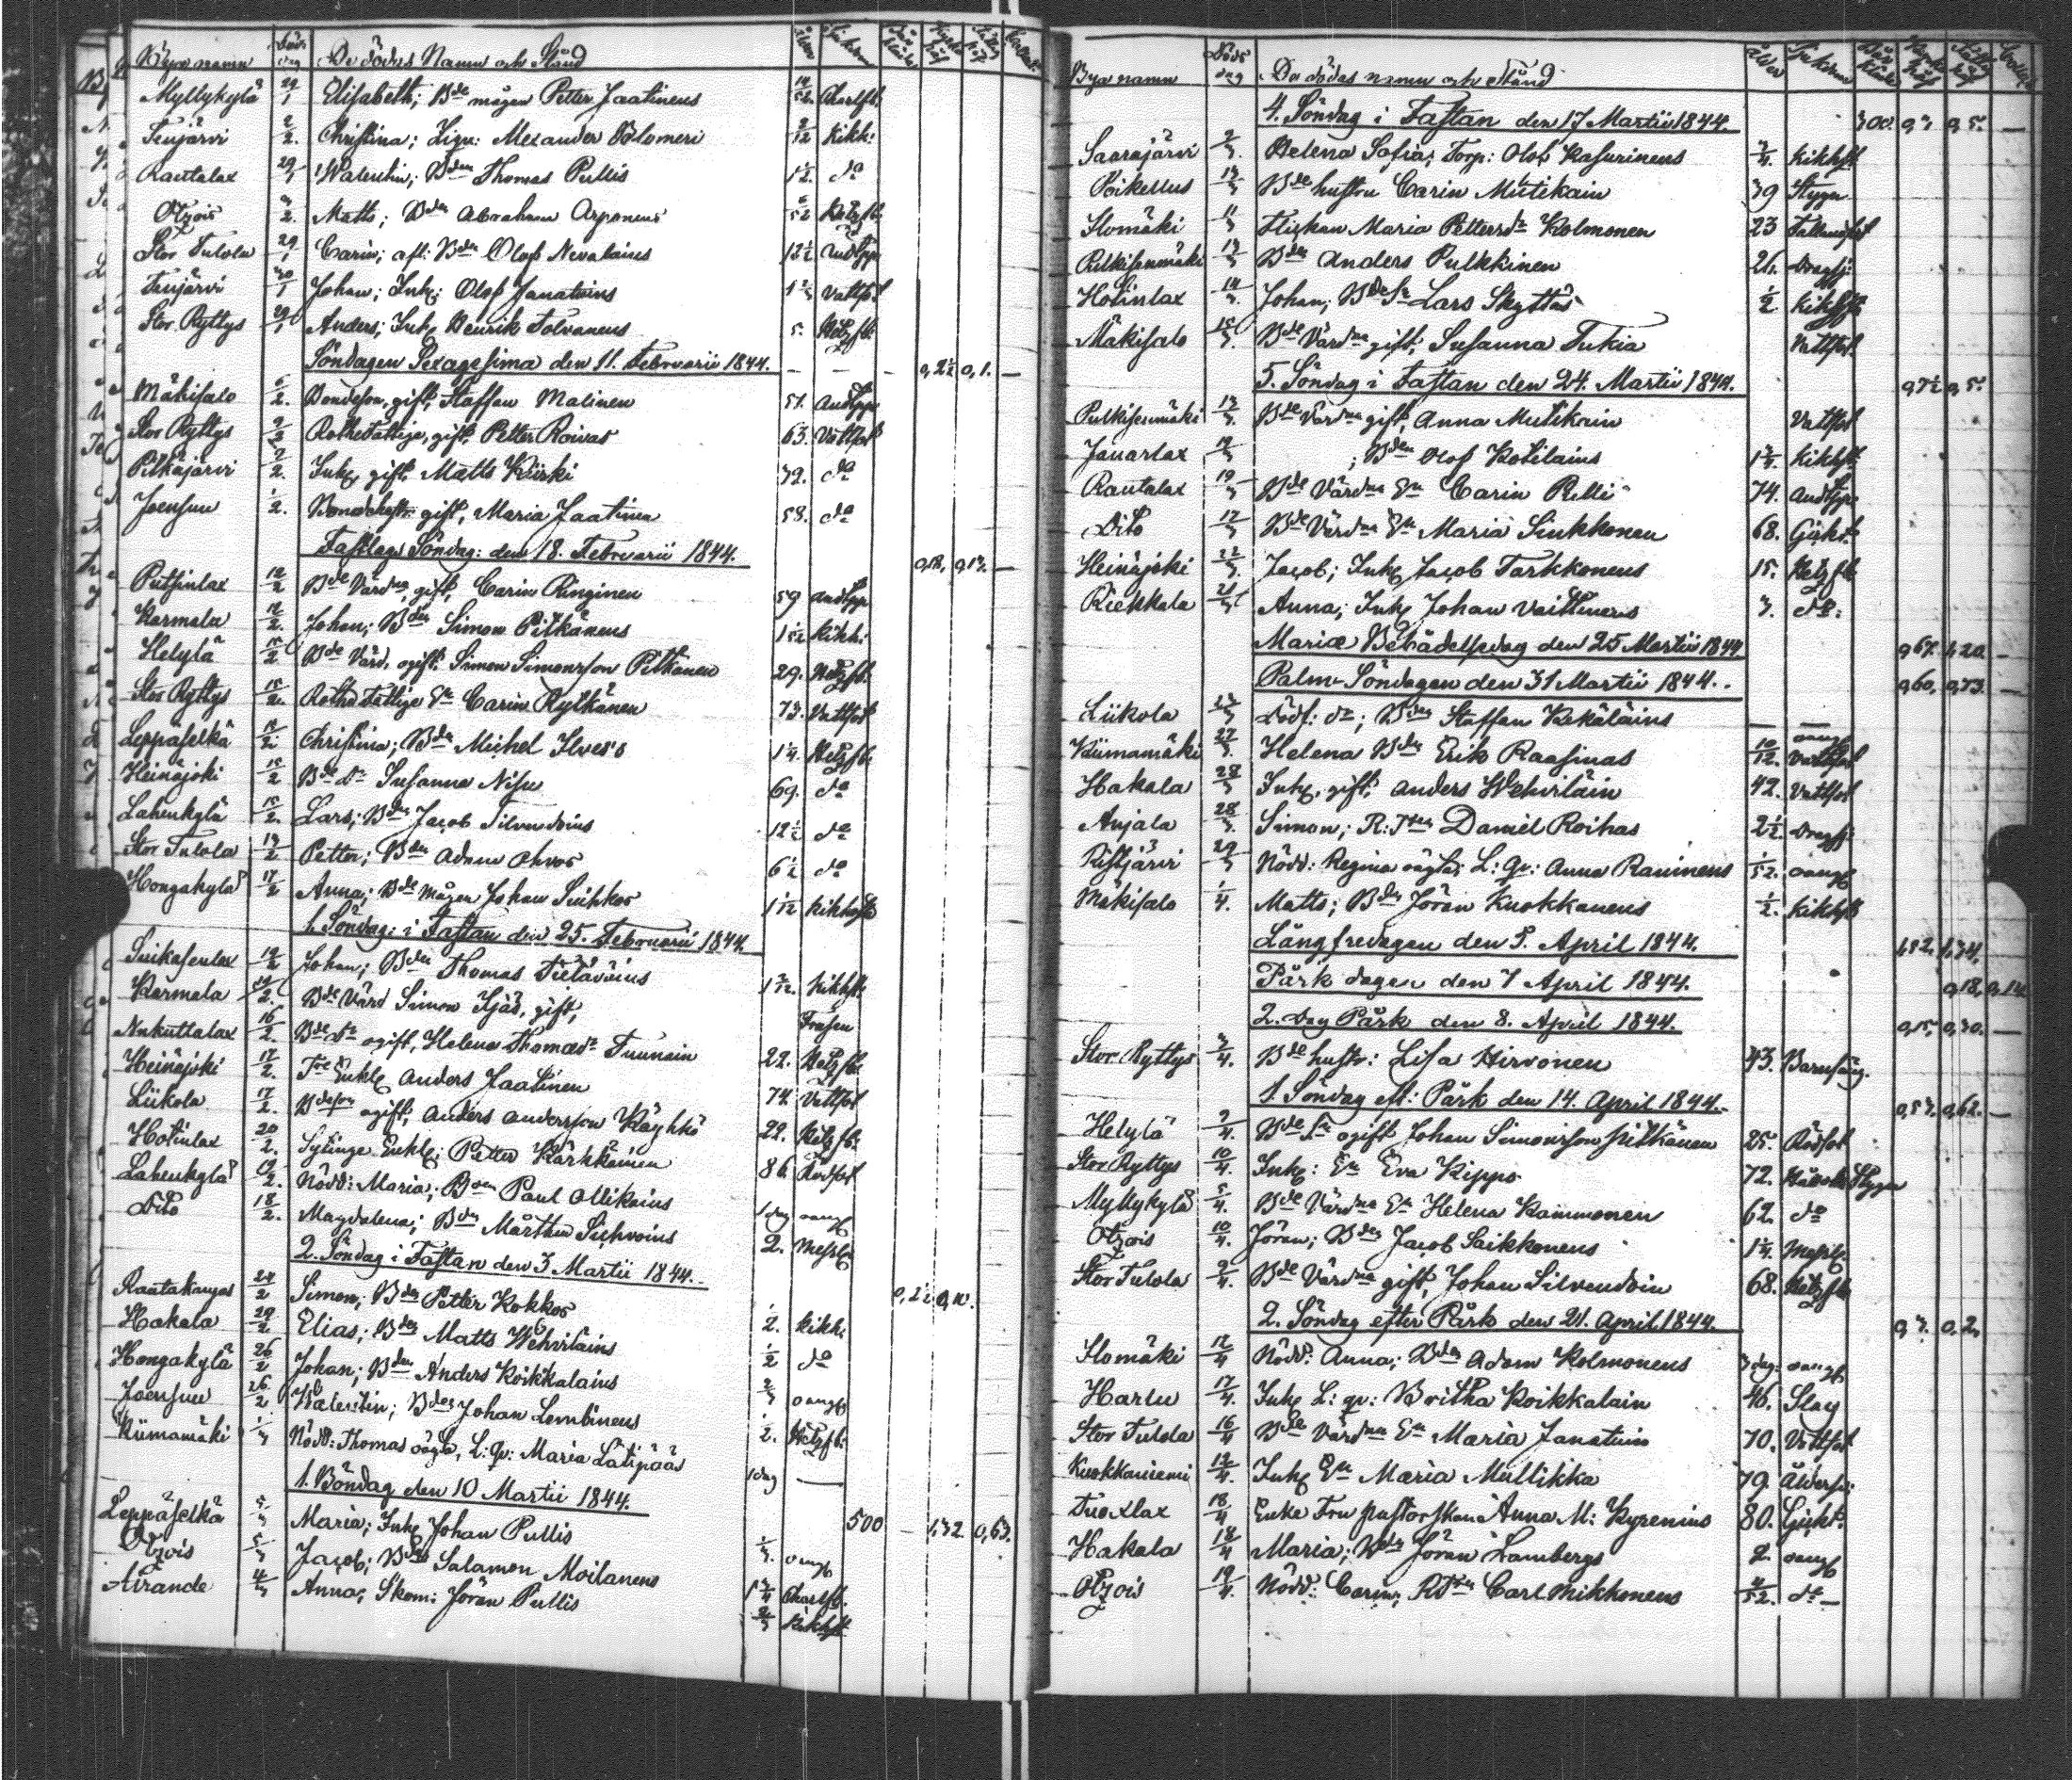 Bya namn Döds dag De dödas Namn och Stånd
Myllykylä 29/1 Elisabeth; Bde mågen Petter Jaatinens
Tenjärvi 2/2. Christina; Alexander Blomeri 2/12 Kikh:
Rautalax 29/1 Walentin; Bden Thomas Pullis 1½. do
Otzois 3/2. Matts; Bden Abraham Arponens
Stor Tulola 29/1 Carin; afl: Bden Olof Nevalains 12½ Andtpp
Tenjärvi 30/1 Johan; Inh; Olof Janatuins Vattsot
Stor Ryttys 29/1 Anders; Inh Henrik Tolvanens 5. Hetzfb:
Söndagen Sexagesima den 11. Februarii 1844. — — — 0,2½ 0,1. —
Mäkisalo 6/2. Bondeson, gift, Staffan Malinen 51. Andtpp
Stor Ryttys 9/2 Rothefattige, gift. Petter Roivas 63. Vattsot
Pitkäjärvi 9/2. Inh, gift, Matts Kiiski 39. do
Joensuu 1/2. gift, Maria Jaatinen 58. do
Fastlags Söndag: den 18. Februarii 1844. 0,18, 0,13. —
Putsinlax 12/2 Bde Värdna, gift, Carin Ringinen 59 Andtpp.
Karmala 12/2. Johan; Bden Simon Pitkänens Kikh:
Helylä 15/2 Bde Värd, ogift. Simon Simonsson Pitkänen 29. Hetzfb:
Stor Ryttys 15/2. Rothefattige En Carin Rytkänen 73. Vattsot
Leppäselkä Christina; Bden Michel Ilves's 1¼. Hetzfb:
Heinäjoki 15/2 Bde dr Susanna Nisu 69. do
Lahenkylä 15/2. Lars; Bden Jacob Silvendoins 12½ do
Stor Tulola 13/2 Petter; Bden Adam Ahvos 6½ do
Hongakylä 17/2 Anna; Bde mågen Johan Suihkos 1 1/12 Kikhosta
1. Söndag: i Fastan den 25. Februarii 1844.
19/2 Johan; Bden Thomas Tietäväins Kikhst:
Karmala 14/2. Bde Värd Simon Ijäs, gift, Frossen
Nukuttalax 16/2 Bde dr ogift, Helena Thomædr Tuunain 22. Hetzfb:
Heinäjoki 17/2. Anders Jaatinen 74 Vattsot
Liikola 17/2. Bdeson ogift, Anders Andersson Käyhkö 22. Hetzfb:
Hotinlax 20/2. Sytinge Enkl: Petter Kärkkäinen 86 Rödsot
Lahenkylä 19/2. Nödd: Maria; Bden Paul Ollikains 1 dag oangf
Dito 18/2. Magdalena; Bden Mårthen Sihvoins 2. Messl:
2. Söndag i Fastan den 3 Martii 1844.— 0,2½ 0,10.
Rautakangas 24/2 Simon; Bden Petter Kokkos 2. Kikh:
Hakala 29/2 Elias; Bden Matts Wehviläins ½ do
Hongakylä 26/2 Johan; Bden Anders Koikkalains oangf
Joensuu 26/2 Walentin; Bden Johan Lemlinens 2. Hetzfb:
Kiimamäki 1/3 Nödd: Thomas oägta, L: qv: Maria Lätipääs 1 dag —
1. Böndag den 10 Martii 1844. 500 — 1,32 0,63.
Leppäselkä 5/3 Maria; Inh Johan Pullis oangf
Otzois 5/3 Jacob; Bden Salamon Moilanens 1¾ Charlfb.
Airande 4/3 Anna; Skom: Jöran Pullis 2/3 Kikhst
Bya namn Döds dag De dödas namn och Stånd
4. Söndag i Fastan den 17 Martii 1844. 300. 0,3 0,5. —
Saarajärvi 9/3. Helena Sofia; Torp: Olof Kasurinens ¾. Kikhst
Poikellus 13/3 Bde hustru Carin Mutikain 39 Stygn
Ilomäki 11/3 Flickan Maria Pettersdr Kolmonen 23
Pulkisenmäki 13/3 Bden Anders Pulkkinen 26.
Hotinlax 14/3. Johan; Lars Skyttäs ½ Kikhst
Mäkisalo 15/3. Bde Värdna gift; Susanna Tukia Vattsot
5. Söndag i Fastan den 24. Martii 1844. 0,7½ 0,5.
Pulkisenmäki 13/3. Bde Värdna gift, Anna Mutikain Vattsot
Janaslax 19/3 ; Bden Olof Kotilains Kikhst
Rautalax 19/3 Bde Värdna En Carin Pulli 74. Andtpp
Dito 17/3 Bde Värdna En Maria Sinkkonen 68. Gickt.
Heinäjoki 22/3. Jacob; Inh Jacob Tarkkonens 15. Hetzfb
Riekkala 21/3 Anna; Inh Johan Vaittinens 3. do.
Mariæ Bebådelsedag den 25 Martii 1844 0,67. 1,20. —
Palm-Söndagen den 31 Martii 1844.. 0,60. 0,73. —
Liikola Dödf: dr; Bden Staffan Kekäläins — —
Kiimamäki 27/3. Helena Bden Erik Raasinas 10/12. Vattsot
Hakala 28/3 Inh, gift, Anders Wehviläin 42. Vattsot
Anjala 28/3. Simon; Daniel Roihas 2½
Ristjärvi 29/3 Nödd: Regina oägta; L: qv: Anna Raninens 1/52. oangf
Mäkisalo 1/4. Matts; Bden Jöran Kuokkanens ½. Kikhst
Långfredagen den 5. April 1844. 1,52. 1,34.
Påsk dagen den 7 April 1844. 0,18, 0,14
2. Dag Påsk den 8. April 1844. 0,15, 0,30. —
Stor Ryttys 3/4. Bde hustr: Lisa Hirvonen 43. Barnsäng.
1. Söndag eft: Påsk den 14. April 1844.— 0,53, 0,62. —
Helylä 9/4. ogift Johan Simonsson Pitkänen 25. Rödsot
Stor Ryttys 10/4. Inh: En Eva Kippo 72. Håll och Stygn
Myllykylä 5/4. Bde Värdna En Helena Kammonen 62. do
Otzois 10/4. Jöran; Bden Jacob Saikkonens 1¼. Messl:
Stor Tulola 9/4. Bde Värdna gift, Johan Silvendoin 68. Hetzfb
2. Söndag efter Påsk den 21. April 1844. 0,3. 0,2.
Ilomäki 12/4 Nödd: Anna; Bden Adam Kolmonens 3 dag. oangf
Harlu 17/4. Inh L: qv: Britha Koikkalain 46. Slag
Stor Tulola 16/4 Bde Värdna En Maria Janatuin 70. Vattsot
Kuokkaniemi 12/4. Inh En Maria Mullikka 79. Ålders:
Tuoxlax 18/4 Enke Fru pastorskan Anna M: Kyrenius 80. Gickt.
Hakala 18/4 Maria; Bden Jöran Lambergs 2. oangf
Otzois 19/4. Nödd: Carin; Carl Mikkonens 4/52. do —